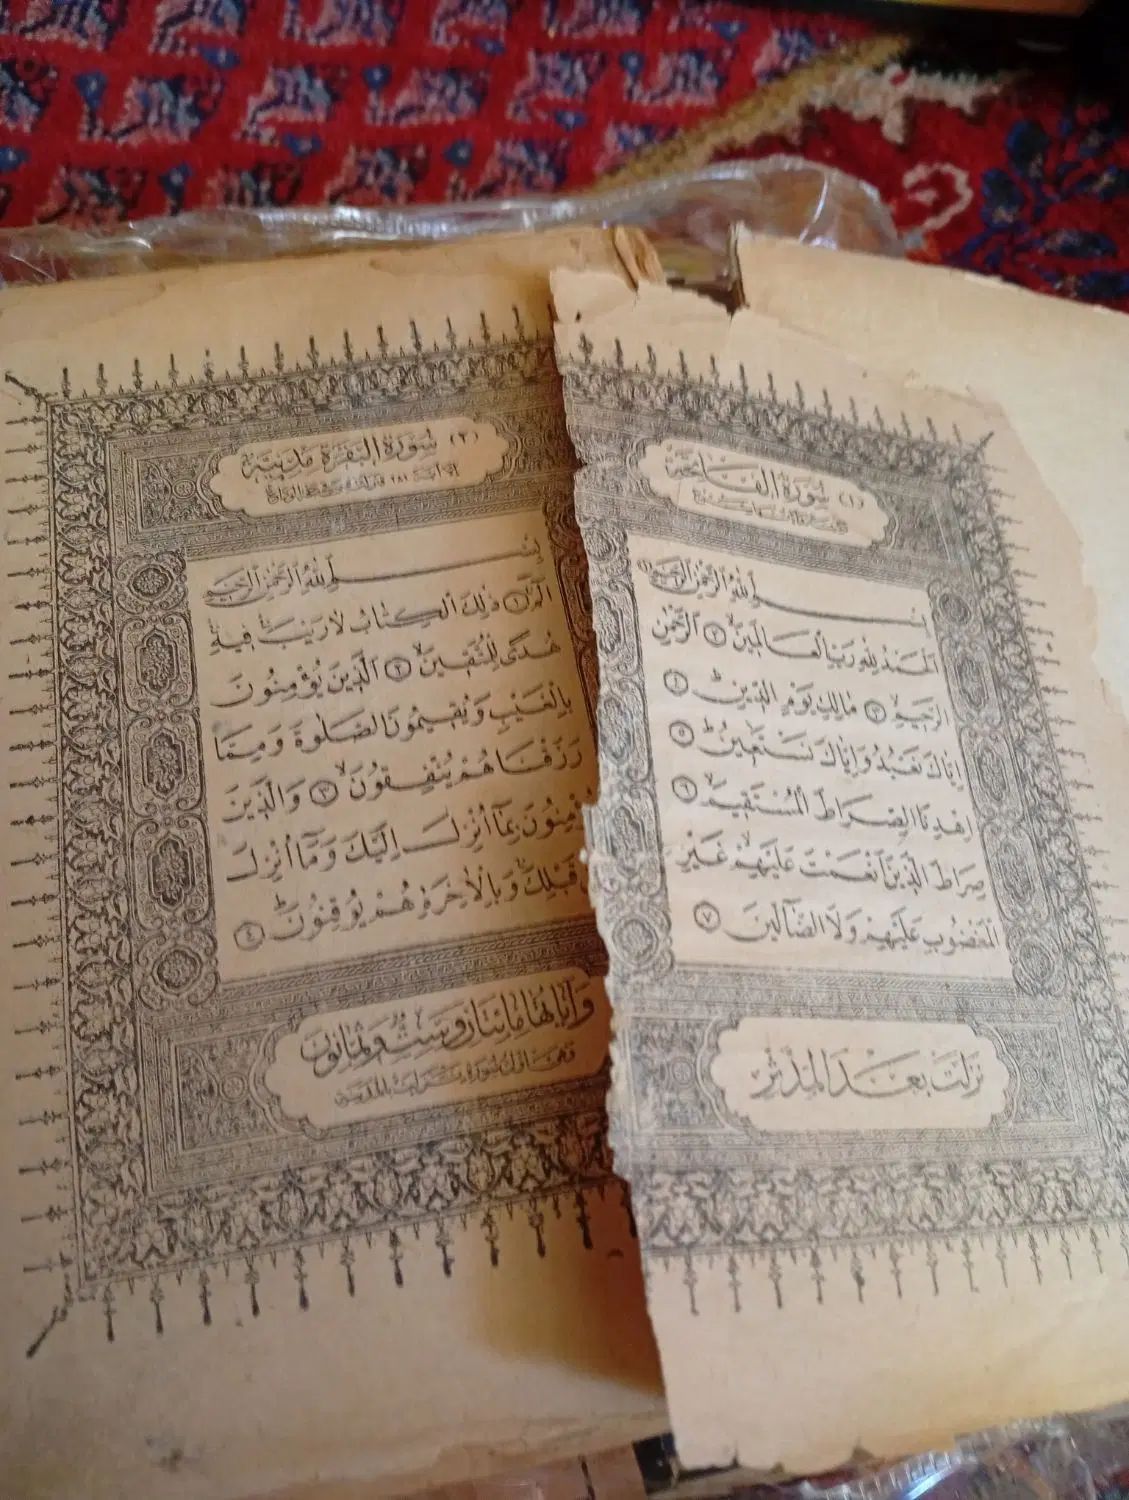 (١) سُورَةُ الفَاتِحَة
بِسْمِ اللهِ الرَّحْمٰنِ الرَّحِيمِ ١
اَلْحَمْدُ لِلّٰهِ رَبِّ الْعَالَمِينَ ٢ اَلرَّحْمٰنِ
الرَّحِيمِ ٣ مَالِكِ يَوْمِ الدِّينِ ٤
اِيَّاكَ نَعْبُدُ وَاِيَّاكَ نَسْتَعِينُ ٥
اِهْدِنَا الصِّرَاطَ الْمُسْتَقِيمَ ٦
صِرَاطَ الَّذِينَ اَنْعَمْتَ عَلَيْهِمْ غَيْرِ
الْمَغْضُوبِ عَلَيْهِمْ وَلَا الضَّالِّينَ ٧
نَزَلَتْ بَعْدَ الْمُدَّثِّرِ
(٢) سُورَةُ البَقَرَةِ مَدَنِيَّة
بِسْمِ اللهِ الرَّحْمٰنِ الرَّحِيمِ
الٓمٓ ١ ذٰلِكَ الْكِتَابُ لَا رَيْبَ فِيهِ
هُدًى لِلْمُتَّقِينَ ٢ اَلَّذِينَ يُؤْمِنُونَ
بِالْغَيْبِ وَيُقِيمُونَ الصَّلٰوةَ وَمِمَّا
رَزَقْنَاهُمْ يُنْفِقُونَ ٣ وَالَّذِينَ
يُؤْمِنُونَ بِمَا اُنْزِلَ اِلَيْكَ وَمَا اُنْزِلَ
مِنْ قَبْلِكَ وَبِالْاٰخِرَةِ هُمْ يُوقِنُونَ ٤
وَآيَاتُهَا مِائَتَانِ وَسِتٌّ وَثَمَانُونَ